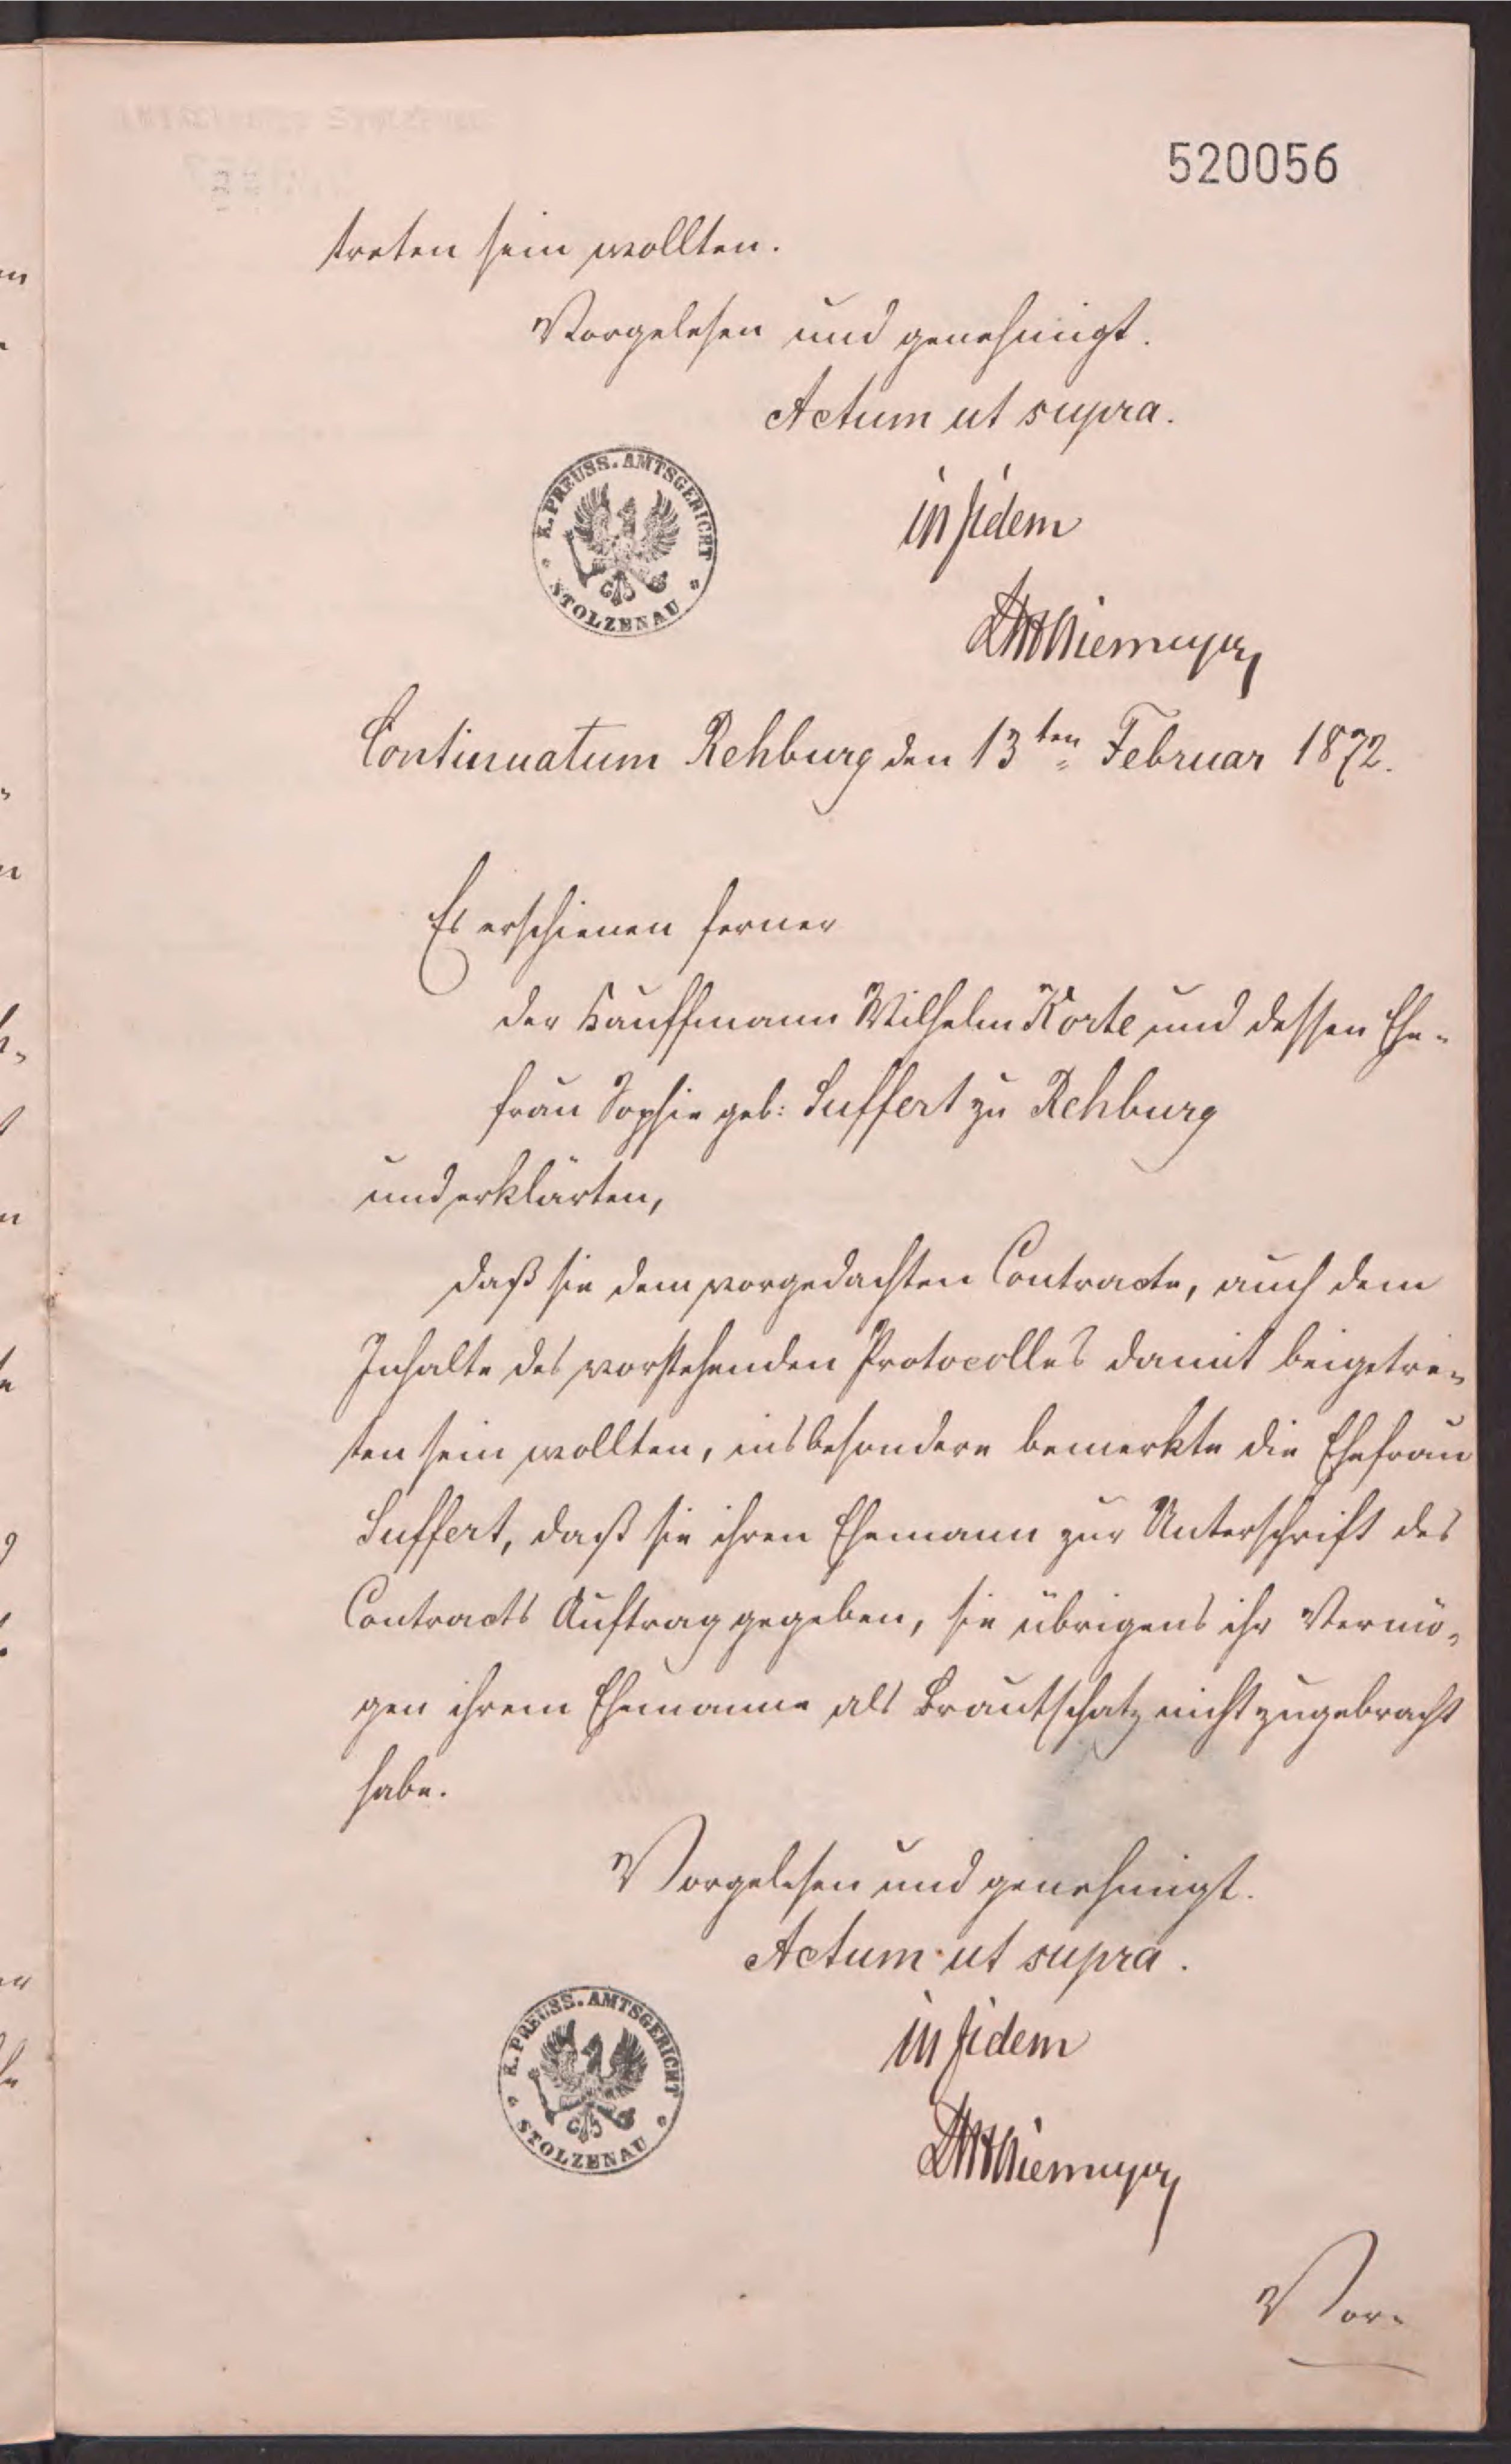 520056
treten sein wollten.
Vorgelesen und genehmigt.
Actum ut supra.
K. PREUSS. AMTSGERICHT
STOLZENAU
in fidem
Continuatum Rehburg den 13ten Februar 1872.
Es erschienen ferner
der Kauffmann Wilhelm Korte und dessen Ehe-
frau Sophie geb: Suffert zu Rehburg
und erklärten,
daß sie dem vorgedachten Contracte, auch dem
Inhalte des vorstehenden Protocolles damit beigetre-
ten sein wollten, insbesondere bemerkte die Ehefrau
Suffert, daß sie ihren Ehemann zur Unterschrift des
Contracts Auftrag gegeben, sie übrigens ihr Vermö-
gen ihrem Ehemanne als Brautschatz nicht zugebracht
habe.
Vorgelesen und genehmigt.
Actum ut supra.
K. PREUSS. AMTSGERICHT
STOLZENAU
in fidem
Vor-